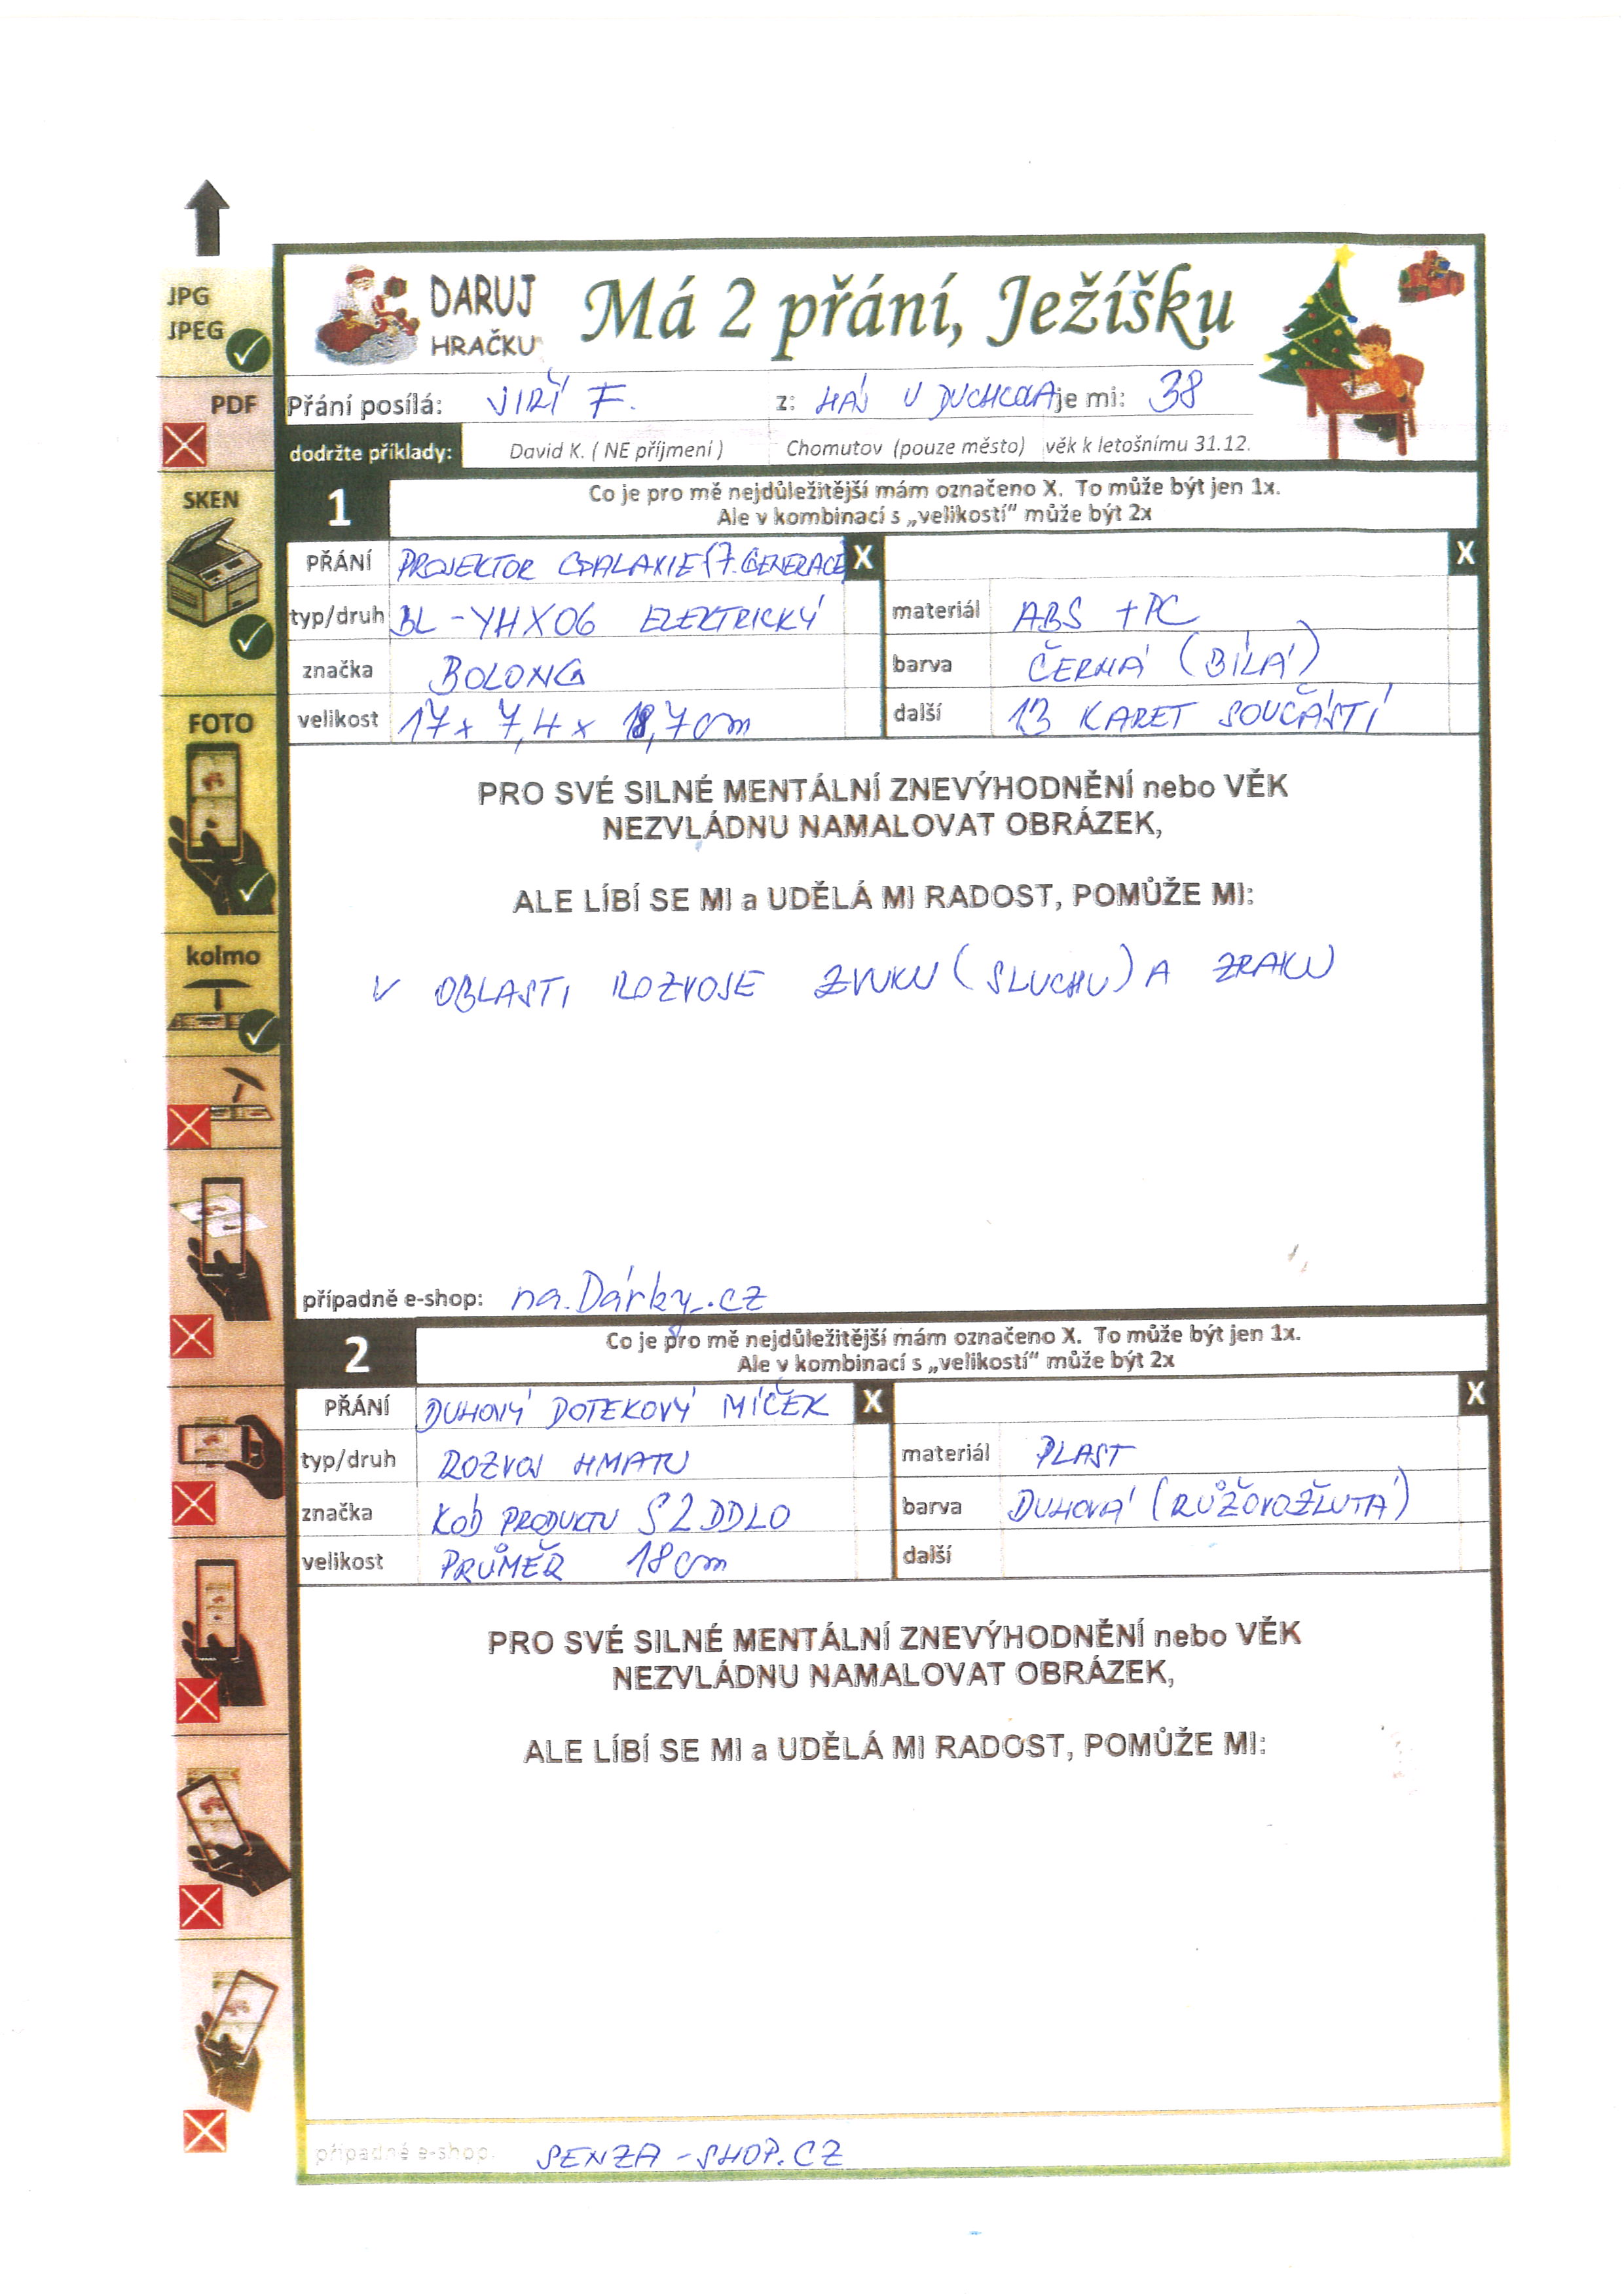 JPG
JPEG
PDF
SKEN
FOTO
kolmo
DARUJ
HRAČKU
Má 2 přání, Ježíšku
Přání posílá: JIŘÍ F. z: HÁJ U DUCHCOVA je mi: 38
dodržte příklady: David K. ( NE příjmení ) Chomutov (pouze město) věk k letošnímu 31.12.
1 Co je pro mě nejdůležitější mám označeno X. To může být jen 1x.
Ale v kombinací s „velikostí“ může být 2x
PŘÁNÍ PROJEKTOR GALAXIE (7. GENERACE) X X
typ/druh BL-YHX06 ELEKTRICKÝ materiál ABS + PC
značka BOLONG barva ČERNÁ (BÍLÁ)
velikost 17 x 7,4 x 18,7 cm další 13 KARET SOUČÁSTÍ
PRO SVÉ SILNÉ MENTÁLNÍ ZNEVÝHODNĚNÍ nebo VĚK
NEZVLÁDNU NAMALOVAT OBRÁZEK,
ALE LÍBÍ SE MI a UDĚLÁ MI RADOST, POMŮŽE MI:
V OBLASTI ROZVOJE ZVUKU (SLUCHU) A ZRAKU
případně e-shop: na.Dárky.cz
2 Co je pro mě nejdůležitější mám označeno X. To může být jen 1x.
Ale v kombinací s „velikostí“ může být 2x
PŘÁNÍ DUHOVÝ DOTEKOVÝ MÍČEK X X
typ/druh ROZVOJ HMATU materiál PLAST
značka KÓD PRODUKTU S2DDLO barva DUHOVÁ (RŮŽOVOŽLUTÁ)
velikost PRŮMĚR 18 cm další
PRO SVÉ SILNÉ MENTÁLNÍ ZNEVÝHODNĚNÍ nebo VĚK
NEZVLÁDNU NAMALOVAT OBRÁZEK,
ALE LÍBÍ SE MI a UDĚLÁ MI RADOST, POMŮŽE MI:
případné e-shop: SENZA-SHOP.CZ